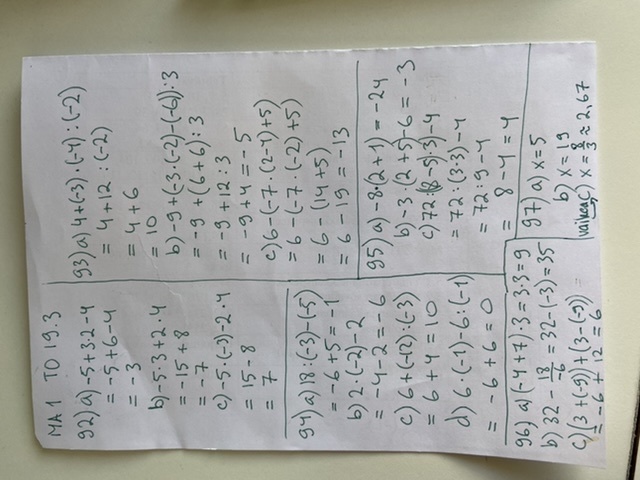 MA1 TO 19.3
92) a) -5+3·2-4
= -5+6-4
= -3
b) -5·3+2·4
= -15+8
= -7
c) -5·(-3)-2·4
= 15-8
= 7
93) a) 4+(-3)·(-4):(-2)
= 4+12:(-2)
= 4+6
= 10
b) -9+(-3·(-2)-(-6)):3
= -9+(6+6):3
= -9+12:3
= -9+4=-5
c) 6-(-7·(2-4)+5)
= 6-(-7·(-2)+5)
= 6-(14+5)
= 6-19=-13
94) a) 18:(-3)-(-5)
= -6+5=-1
b) 2·(-2)-2
= -4-2=-6
c) 6+(-12):(-3)
= 6+4=10
d) 6·(-1)-6:(-1)
= -6+6=0
95) a) -8·(2+1)=-24
b) -3·(2+5)-6=-3
c) 72:(8-5)·3)-4
= 72:(3·3)-4
= 72:9-4
= 8-4=4
96) a) (-4+7)·3=3·3=9
b) 32-18/-6=32-(-3)=35
c) (3+(-9))+(3-(-9))=
= -6+12=6
97) a) x=5
b) x=19
(vaikea) c) x=8/3≈2,67